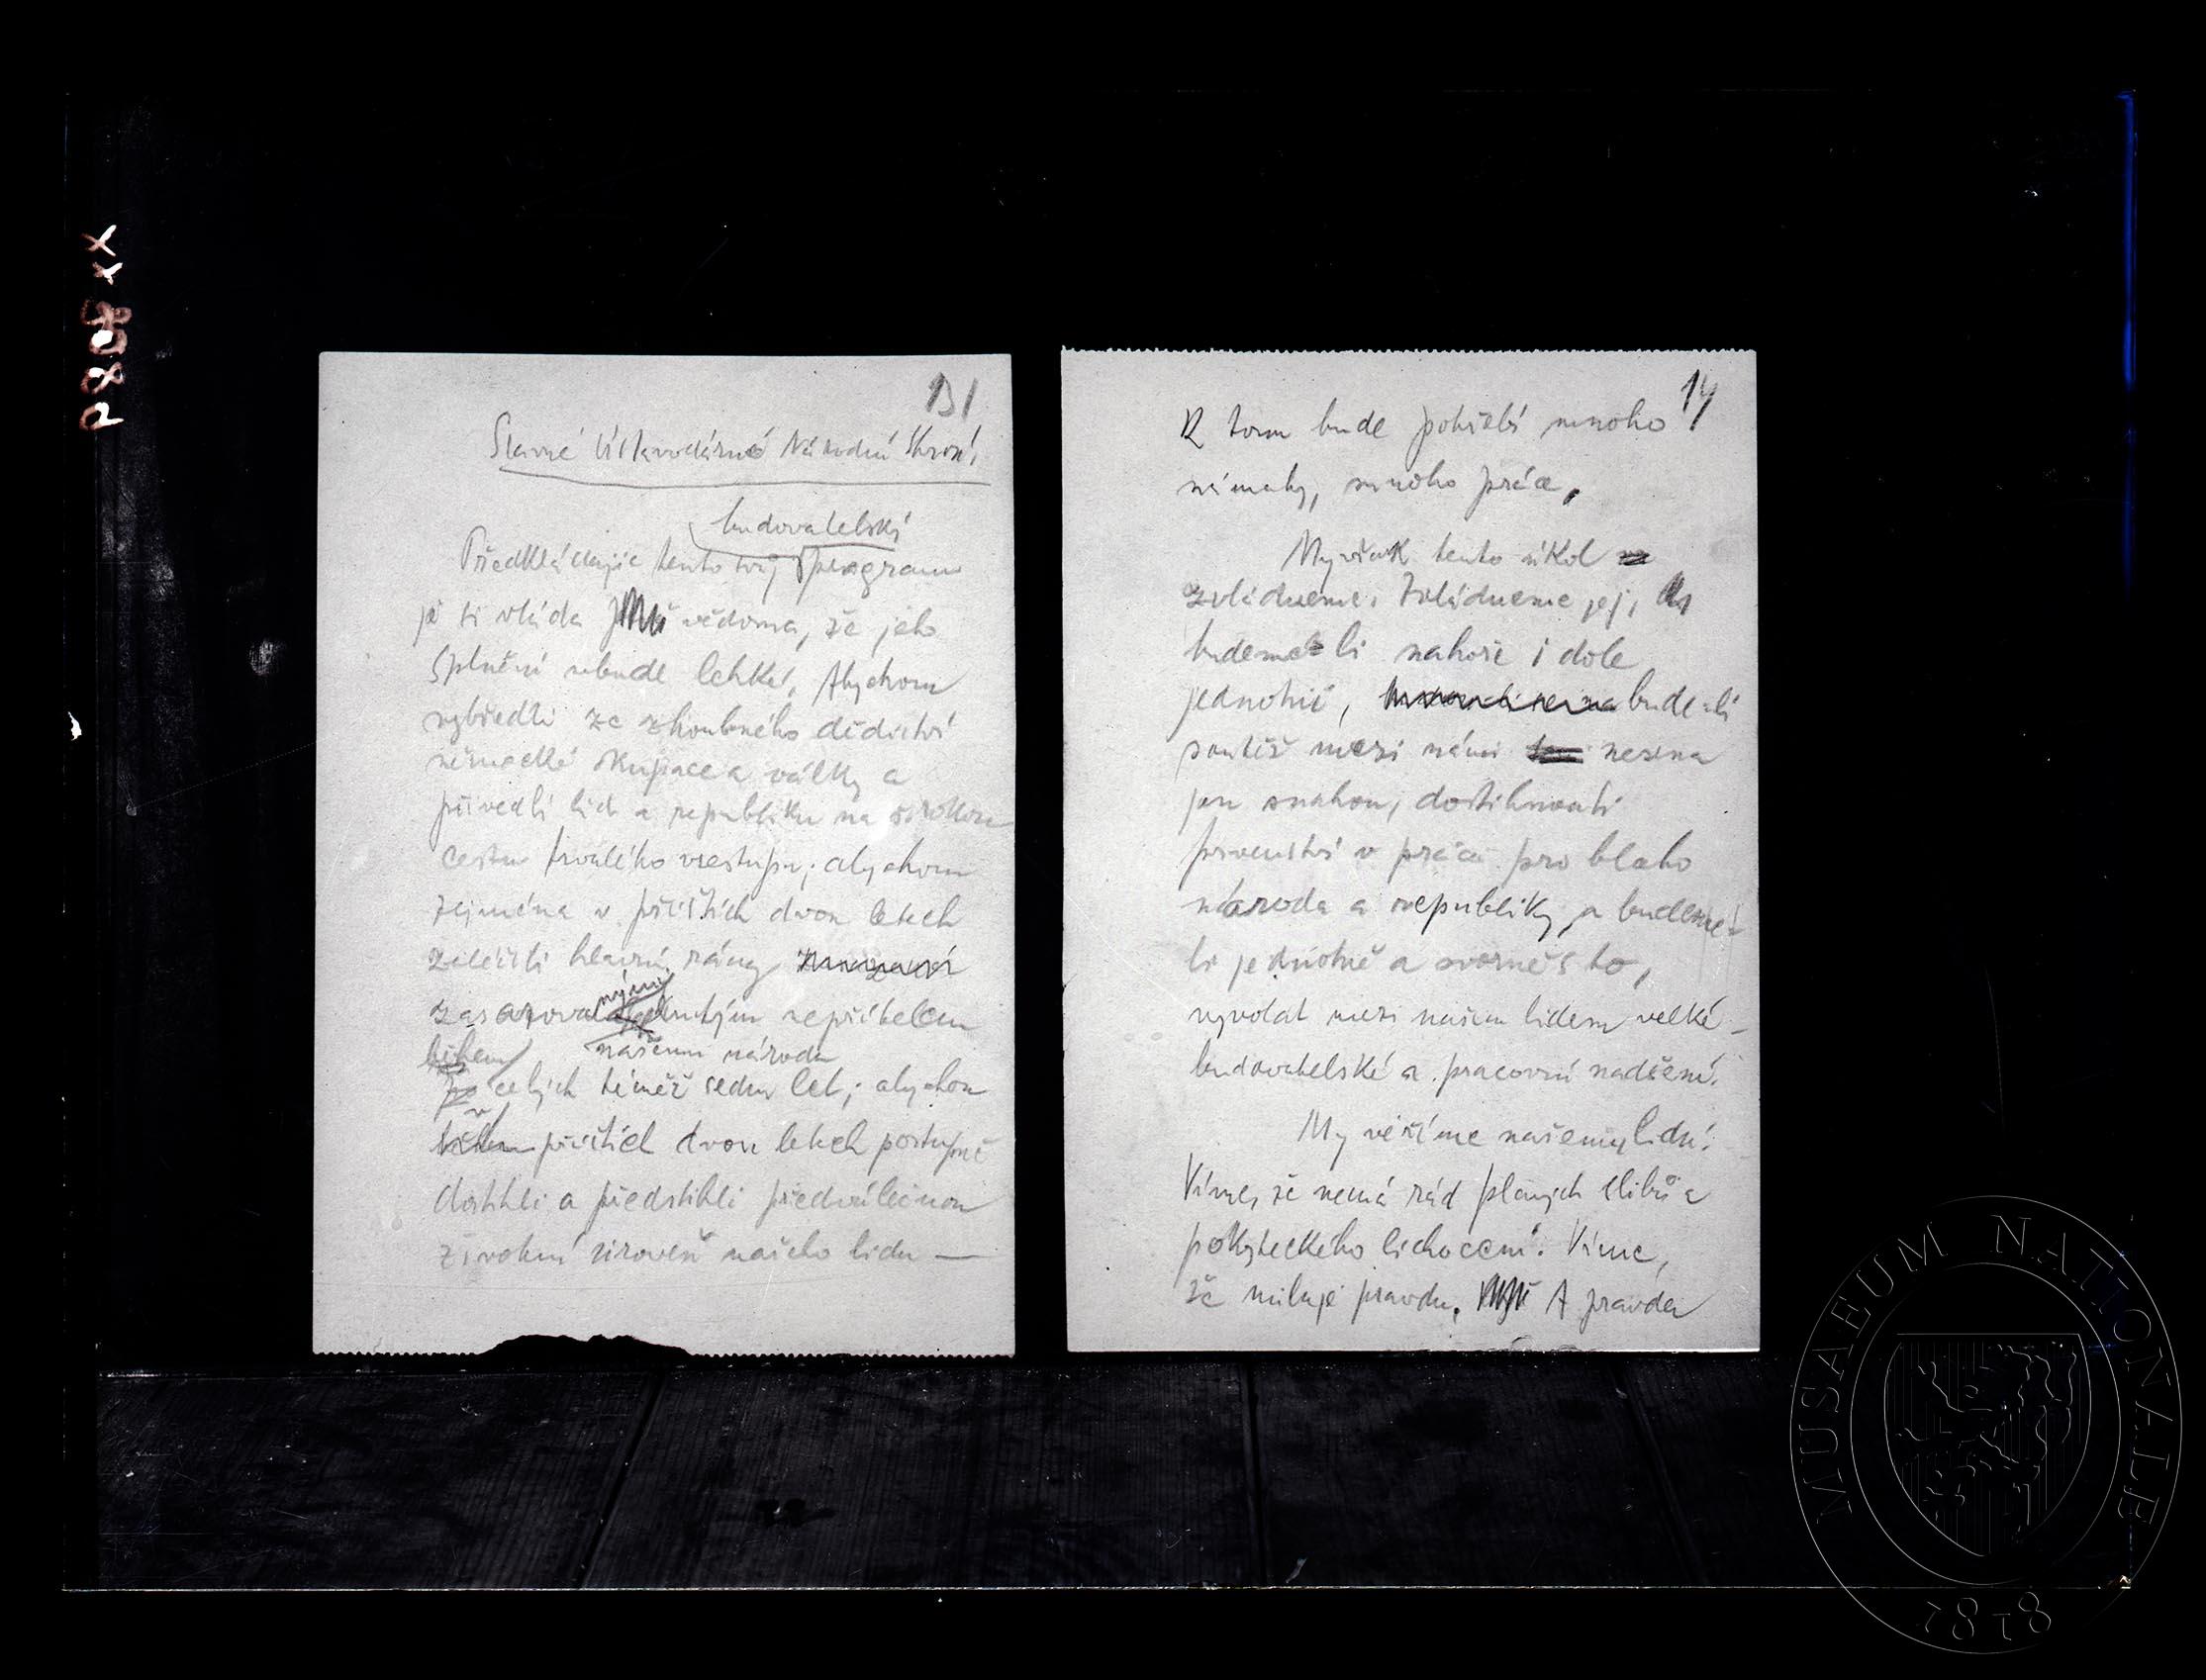 13/
Slavné Ústavodárné Národní Shrom.
budovatelský
Předkládajíc tento svůj program
je si vláda vědoma, že jeho
splnění nebude lehké. Abychom
vybředli ze zhoubného dědictví
německé okupace a války a
přivedli lid a republiku na širokou
cestu trvalého vzestupu; abychom
zejména v příštích dvou letech
zaléčili hlavní rány
zasazované nepřítelem
našemu národu
celých téměř sedm let; abychom
v
příštích dvou letech postupně
dostihli a předstihli předválečnou
životní úroveň našeho lidu —
14
K tomu bude potřebí mnoho
námahy, mnoho práce,
My však tento úkol
zvládneme. Zvládneme jej,
budeme-li nahoře i dole
jednotni, bude-li
soutěž mezi námi nesena
jen snahou, dostihnouti
prvenství v práci pro blaho
národa a republiky, a budeme-
li jednotně a svorně s to,
vyvolat mezi naším lidem velké
budovatelské a pracovní nadšení.
My věříme našemu lidu.
Víme, že nemá rád planých slibů a
pokryteckého lichocení. Víme,
že miluje pravdu. A pravda
P8808 XX
MUSAEUM NATIONALE
1818